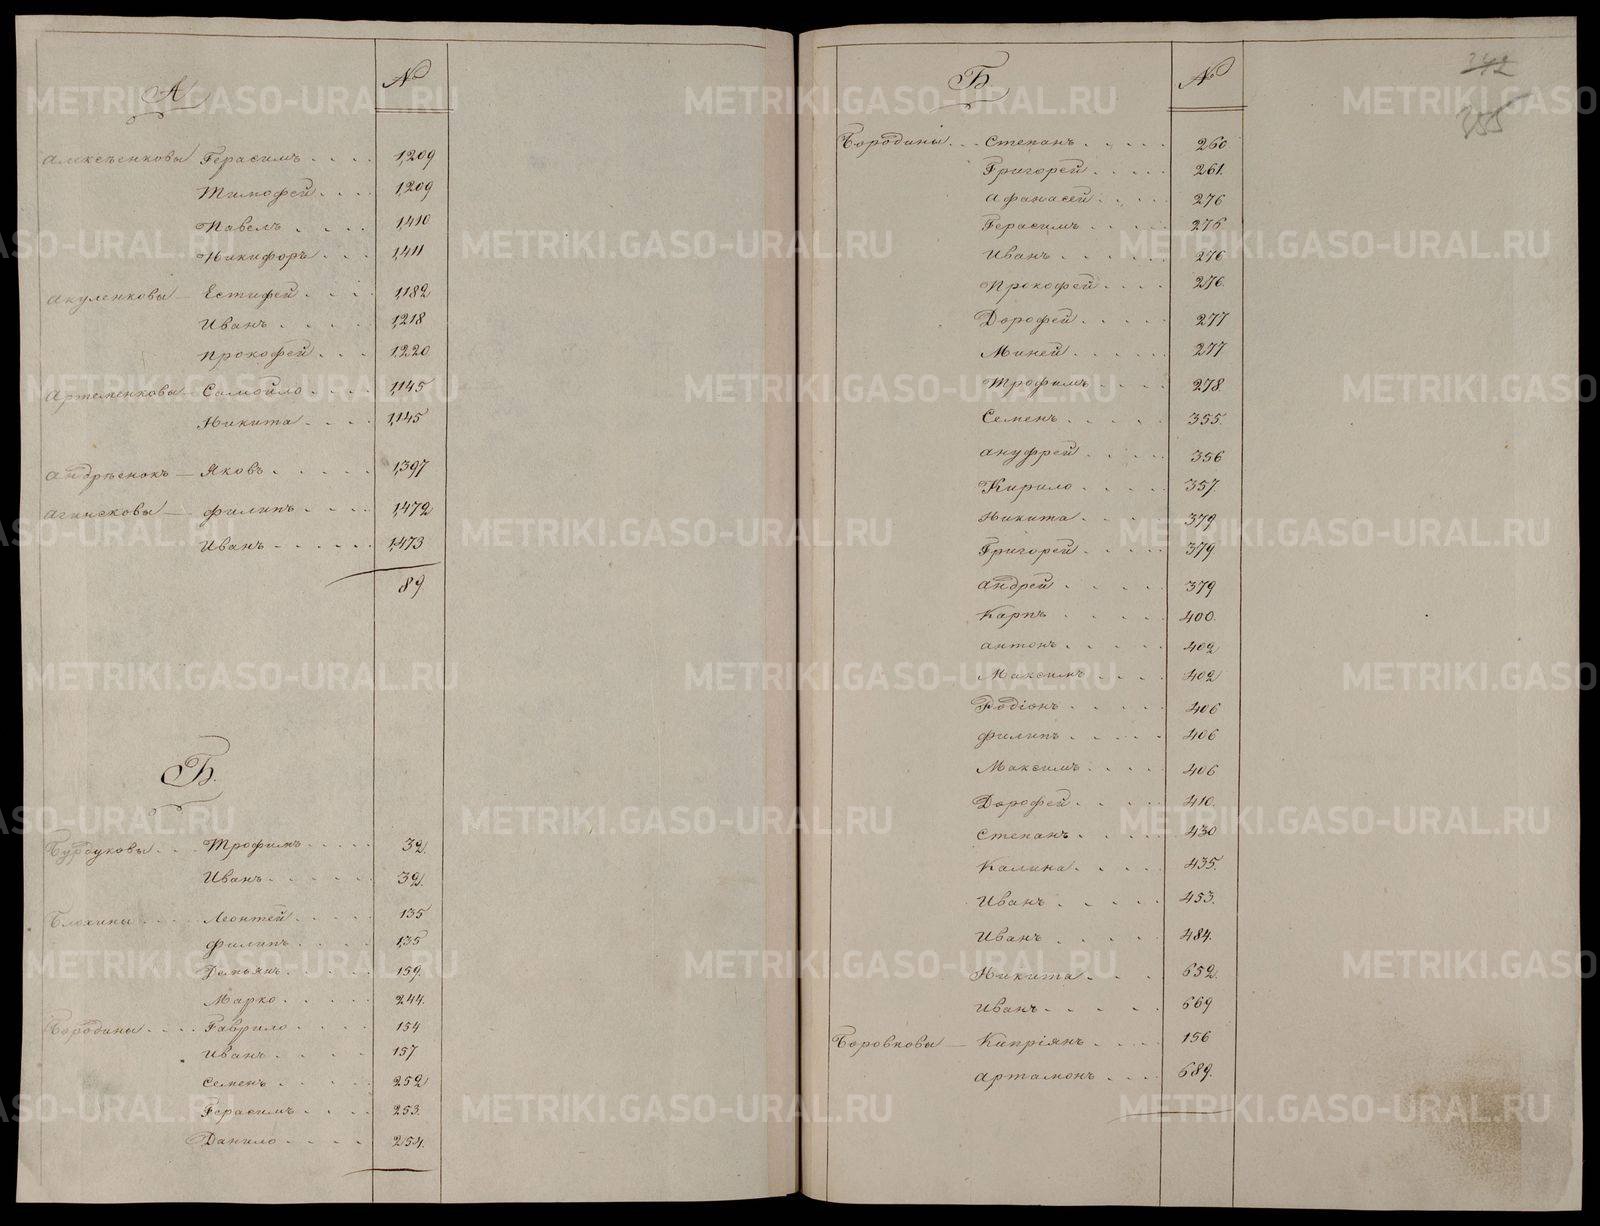 А №
Алексѣенковы Герасимъ . . . . 1,209
Тимофей . . . 1,209
Павелъ . . . . 1,410
Никифоръ . . . 1,411
Акуленковы — Естифей . . . . 1,182
Иванъ . . . . 1,218
Прокофей . . . 1,220
Артеменковы — Самойло . . . . 1,145
Никита . . . . 1,145
Андрѣенокъ — Яковъ . . . . . . 1,397
Агинсковы — Филипъ . . . . 1,472
Иванъ . . . . . . 1,473
89.
Б.
Трофимъ . . . . . 32.
Иванъ . . . . . . 32.
Блохины . . . . Леонтей . . . . . 135
Филипъ . . . . 135
Демьянъ . . . . . 159.
Марко . . . . . 244.
Бородины . . . . Гаврило . . . . 154
Иванъ . . . . . 157
Семенъ . . . . . 252
Герасимъ . . . . 253.
Данило . . . . 254.
Б №
242
255
Бородины . . . Степанъ . . . . . 260
Григорей . . . . . 261.
Афанасей . . . . 276
Герасимъ . . . . . 276
Иванъ . . . . . . 276
Прокофей . . . . 276.
Дорофей . . . . 277
Миней . . . . . . 277
Трофимъ . . . . 278.
Семенъ . . . . . 355.
Ануфрей . . . . . 356
Кирило . . . . . 357.
Никита . . . . . 379
Григорей . . . . . 379.
Андрей . . . . . 379
Карпъ . . . . . 400.
Антонъ . . . . . 402
Максимъ . . . . 402
Родіонъ . . . . . 406
Филипъ . . . . . 406
Максимъ . . . . 406
Дорофей . . . . 410.
Степанъ . . . . . 430
Калина . . . . . 435.
Иванъ . . . . . 453.
Иванъ . . . . . 484.
Никита . . . . 652.
Иванъ . . . . . 669
Боровковы — Кипріянъ . . . . 156
Артамонъ . . . . 689.
METRIKI.GASO-URAL.RU